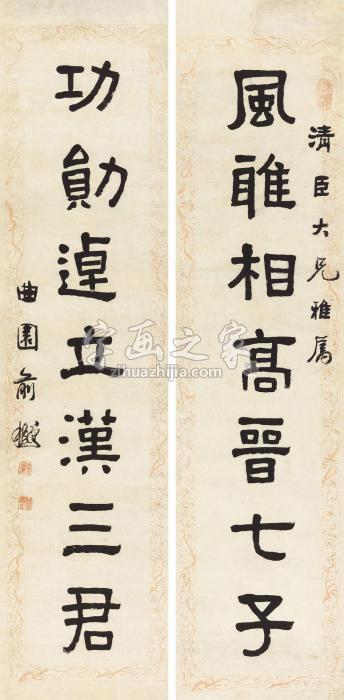 清臣大兄雅属
風雅相高晉七子
功勛逴立漢三君
曲園俞樾
字画之家
zihuazhijia.com